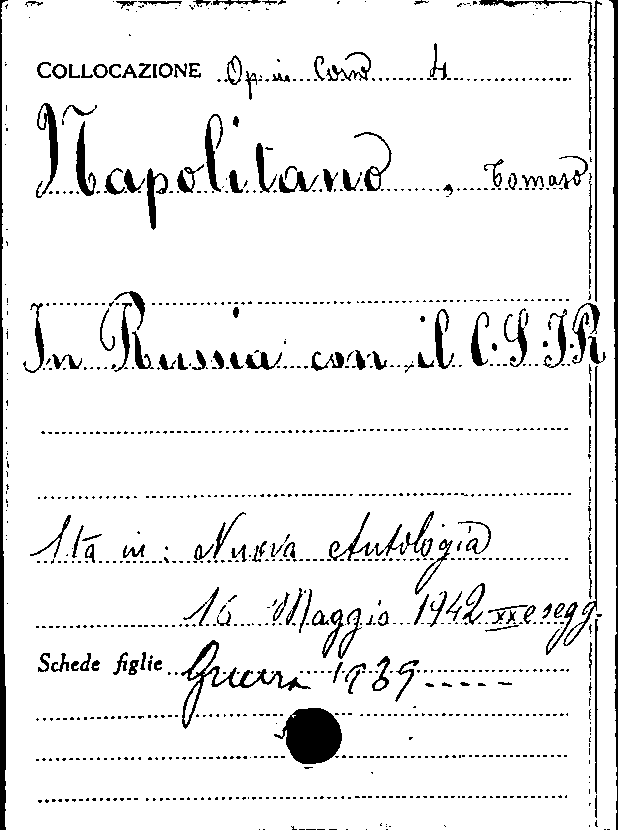 COLLOCAZIONE Op. in Corso 4
Napolitano, Tomaso
In Russia con il C.S.I.R
Sta in: Nuova Antologia
16 Maggio 1942-XX e segg.
Schede figlie Guerra 1939-----